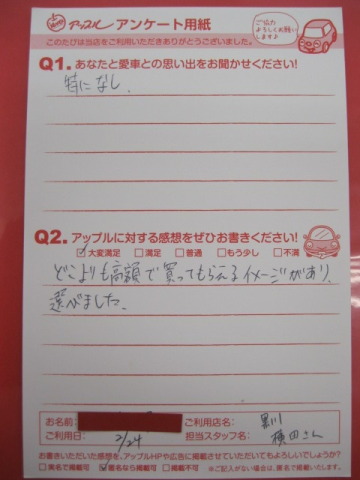 アップル アンケート用紙
ご協力
よろしくお願い
します♪
このたびは当店をご利用いただきありがとうございました。
Q1. あなたと愛車との思い出をお聞かせください!
特になし.
Q2. アップルに対する感想をぜひお書きください!
☑大変満足 □満足 □普通 □もう少し □不満
どこよりも高額で買ってもらえるイメージがあり、
選びました.
お名前: ご利用店名: 黒川
ご利用日: 2/24 担当スタッフ名: 横田さん
お書きいただいた感想を、アップルHPや広告に掲載させていただいてもよろしいでしょうか?
□実名で掲載可 ☑匿名なら掲載可 □掲載不可 ※ご記入がない場合は、匿名で掲載いたします。